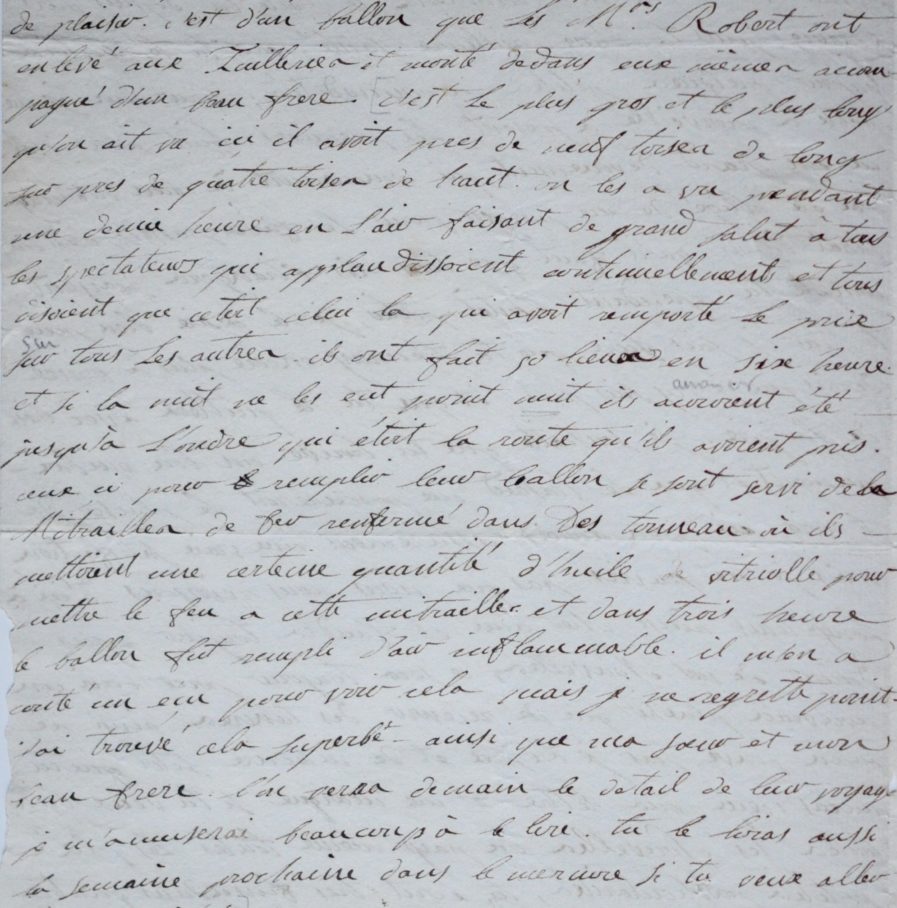 de plaisir. c'est d'un ballon que Les Mrs Robert ont
enlevé aux Tuilleries et monté dedans eux mêmes accom
pagné d'un beau frere. c'est Le plus gros et le plus long
qu'on ait vu ici il avoit pres de neuf toises de long
sur pres de quatre toises de haut. on les a vu pendant
une demie heure en L'air faisant de grand salut à tous
les spectateurs qui applaudissoient continuellement et tous
disoient que cetoit celui la qui avoit remporté Le prix
sur tous Les autres. ils ont fait 50 lieues en six heure.
et si la nuit ne les eut point nuit ils auroient été
jusqu'à L'ondre qui étoit la route qu'ils avoient pris.
ceux ci pour remplir leur ballon se sont servi de la
Mitrailles de fer renfermé dans Des tonneau où ils
mettoient une certeine quantité d'huile de vitriolle pour
mettre le feu a cette mitrailles et dans trois heure
le ballon fut rempli d'air inflammable. il m'en a
couté un ecu pour voir cela mais je ne regrette point.
j'ai trouvé cela superbe ainsi que ma soeur et mon
beau frere. l'on verra demain le detail de leur voyage
je m'amuserai beaucoup à le lire. tu le liras aussi
la semaine prochaine dans le mercure si tu veux aller